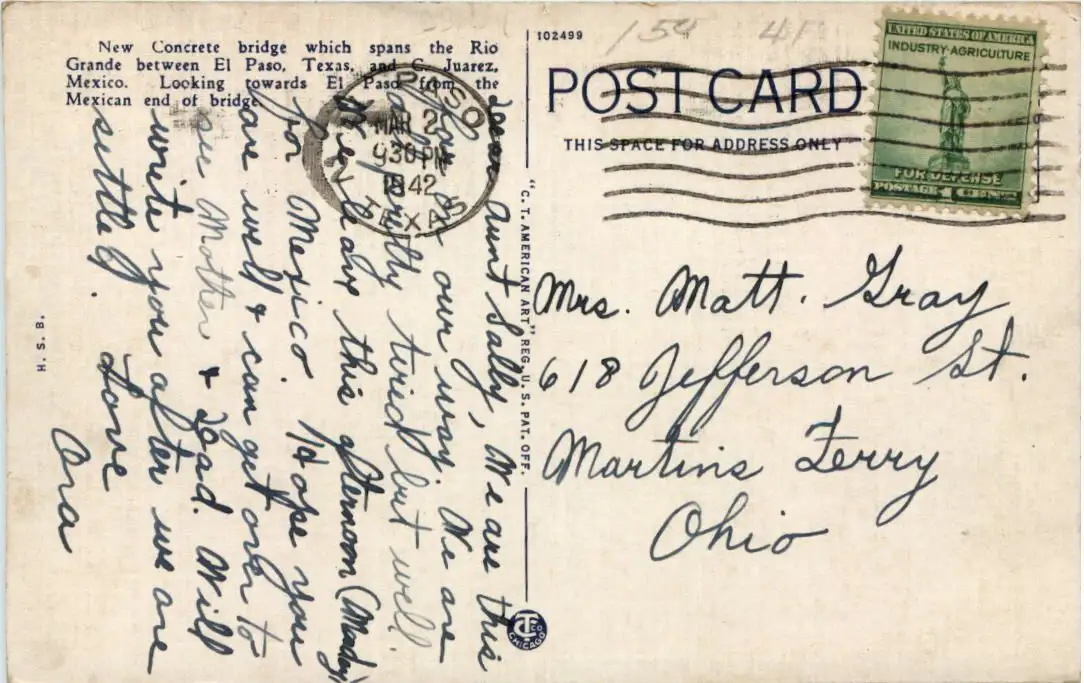 New Concrete bridge which spans the Rio
Grande between El Paso, Texas, and C. Juarez,
Mexico. Looking towards El Paso from the
Mexican end of bridge.
Dear Aunt Sally, We are this
far on our way. We are
pretty tired but well.
this afternoon (Monday)
for Mexico. Hope you
are well & can get over to
see Mother & Dad. Will
write you after we are
settled.
Love
Ora
H. S. B.
PASO
MAR 2
930 PM
1942
TEXAS
102499
150 41
POST CARD
THIS SPACE FOR ADDRESS ONLY
UNITED STATES OF AMERICA
INDUSTRY·AGRICULTURE
FOR DEFENSE
POSTAGE 1 CENT
"C. T. AMERICAN ART" REG. U. S. PAT. OFF.
CT CO
CHICAGO
Mrs. Matt. Gray
618 Jefferson St.
Martins Ferry
Ohio